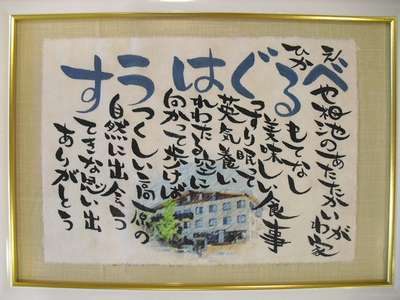 えべや栂池のあたたかいわが家
ひかるもてなし
美味しい食事
ぐっすり眠って
英気養い
はれわたる空に
向かって歩けば
うつくしい高原の
自然に出会う
すてきな思い出
ありがとう